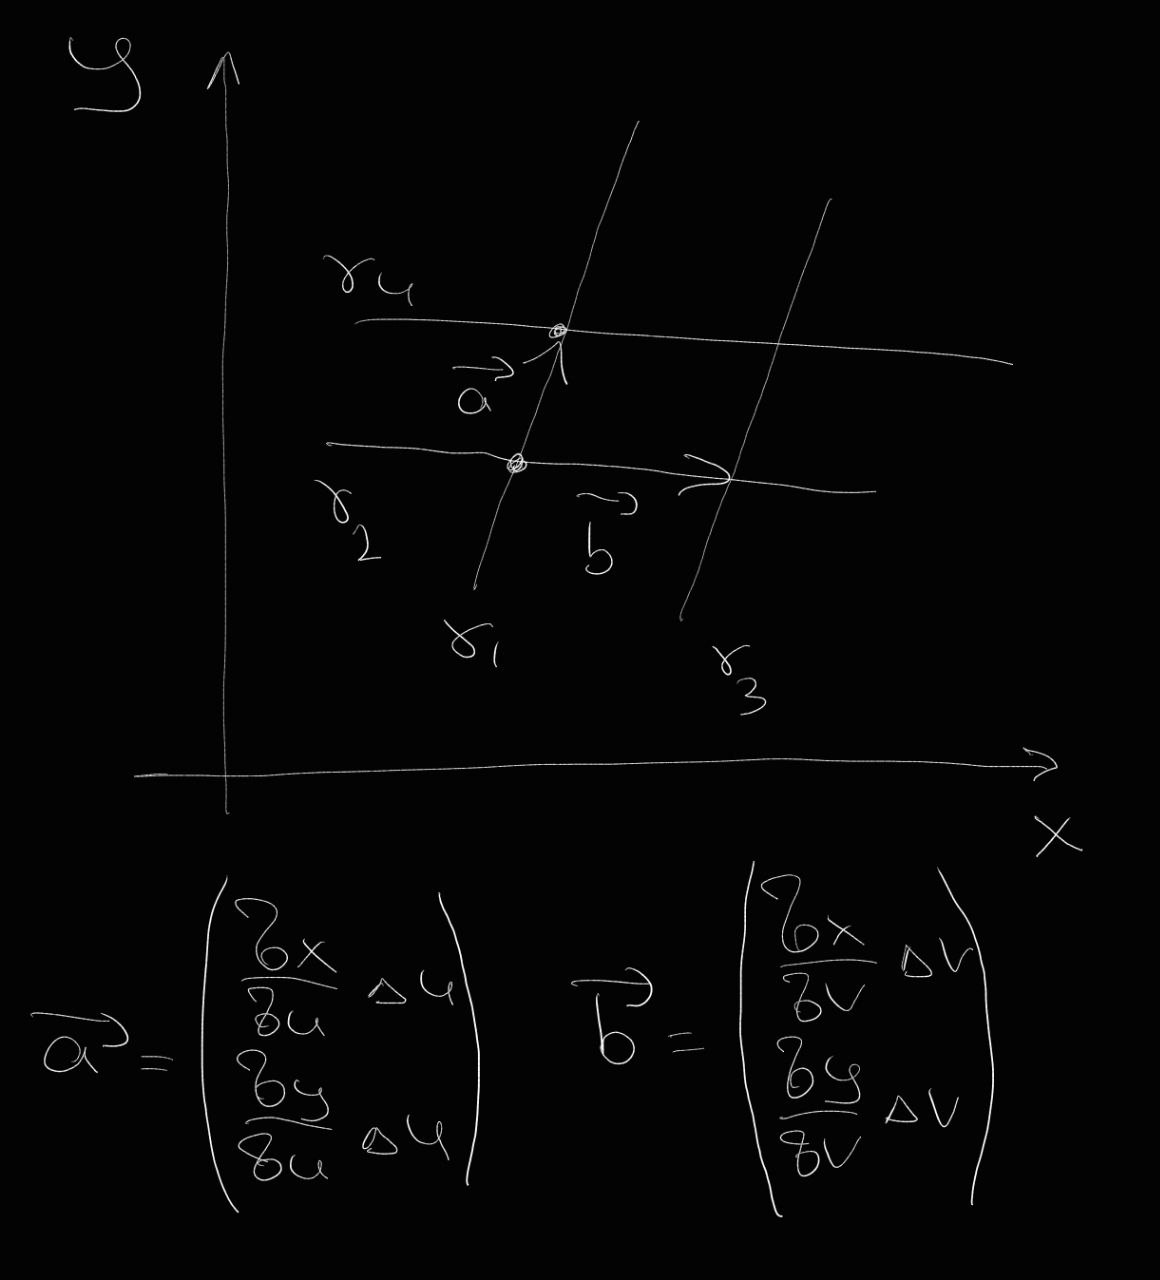 y
γ4
a⃗
γ2
b⃗
γ1
γ3
x
a⃗ = (∂x/∂u Δu
∂y/∂u Δu)
b⃗ = (∂x/∂v Δv
∂y/∂v Δv)